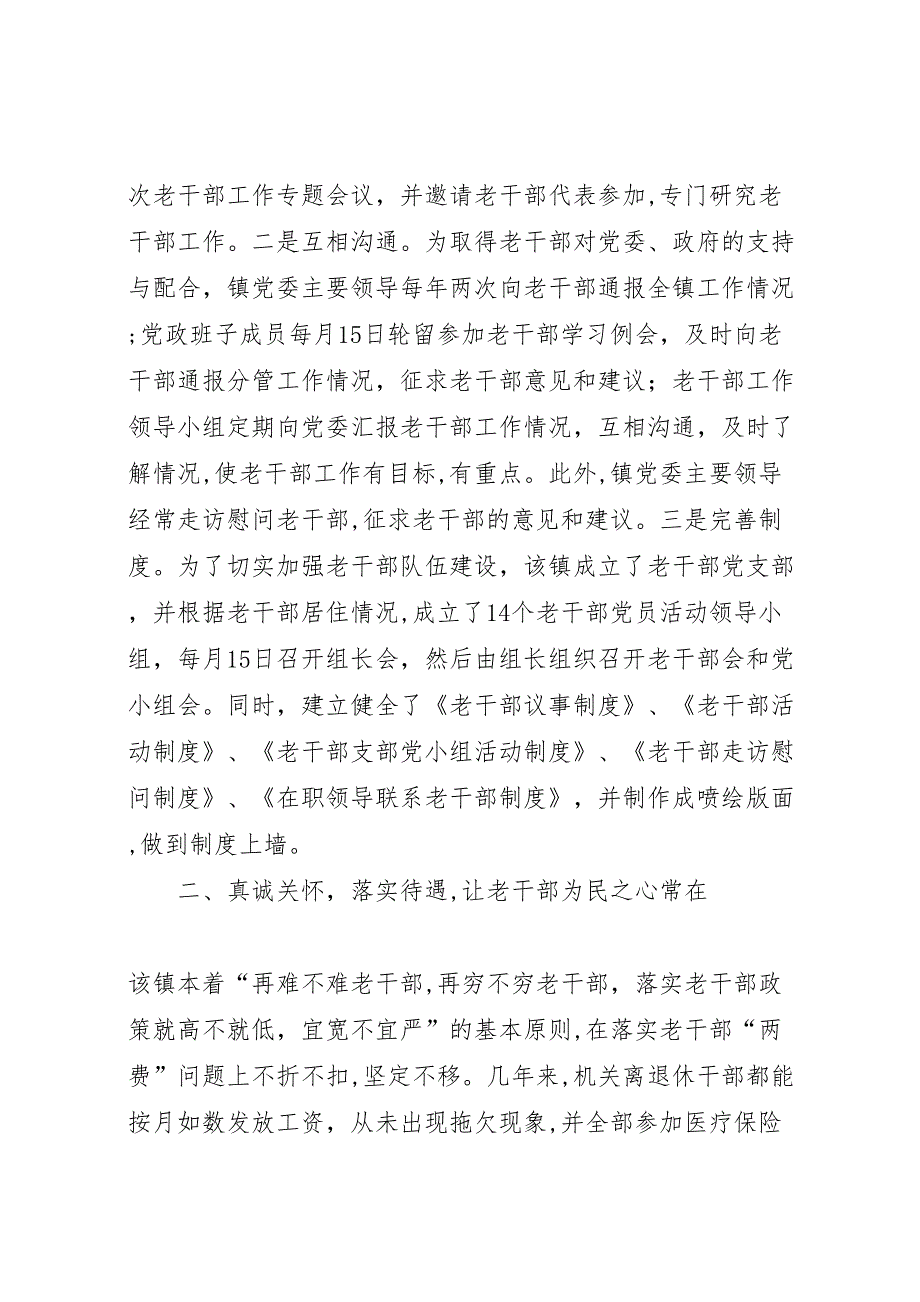 次老干部工作专题会议，并邀请老干部代表参加,专门研究老
干部工作。二是互相沟通。为取得老干部对党委、政府的支持
与配合，镇党委主要领导每年两次向老干部通报全镇工作情况
;党政班子成员每月15日轮留参加老干部学习例会，及时向老
干部通报分管工作情况，征求老干部意见和建议；老干部工作
领导小组定期向党委汇报老干部工作情况，互相沟通，及时了
解情况,使老干部工作有目标,有重点。此外,镇党委主要领导
经常走访慰问老干部,征求老干部的意见和建议。三是完善制
度。为了切实加强老干部队伍建设，该镇成立了老干部党支部
，并根据老干部居住情况,成立了14个老干部党员活动领导小
组，每月15日召开组长会，然后由组长组织召开老干部会和党
小组会。同时，建立健全了《老干部议事制度》、《老干部活
动制度》、《老干部支部党小组活动制度》、《老干部走访慰
问制度》、《在职领导联系老干部制度》，并制作成喷绘版面
,做到制度上墙。
二、真诚关怀，落实待遇,让老干部为民之心常在
该镇本着“再难不难老干部,再穷不穷老干部，落实老干部政
策就高不就低，宜宽不宜严”的基本原则,在落实老干部“两
费”问题上不折不扣,坚定不移。几年来,机关离退休干部都能
按月如数发放工资，从未出现拖欠现象,并全部参加医疗保险